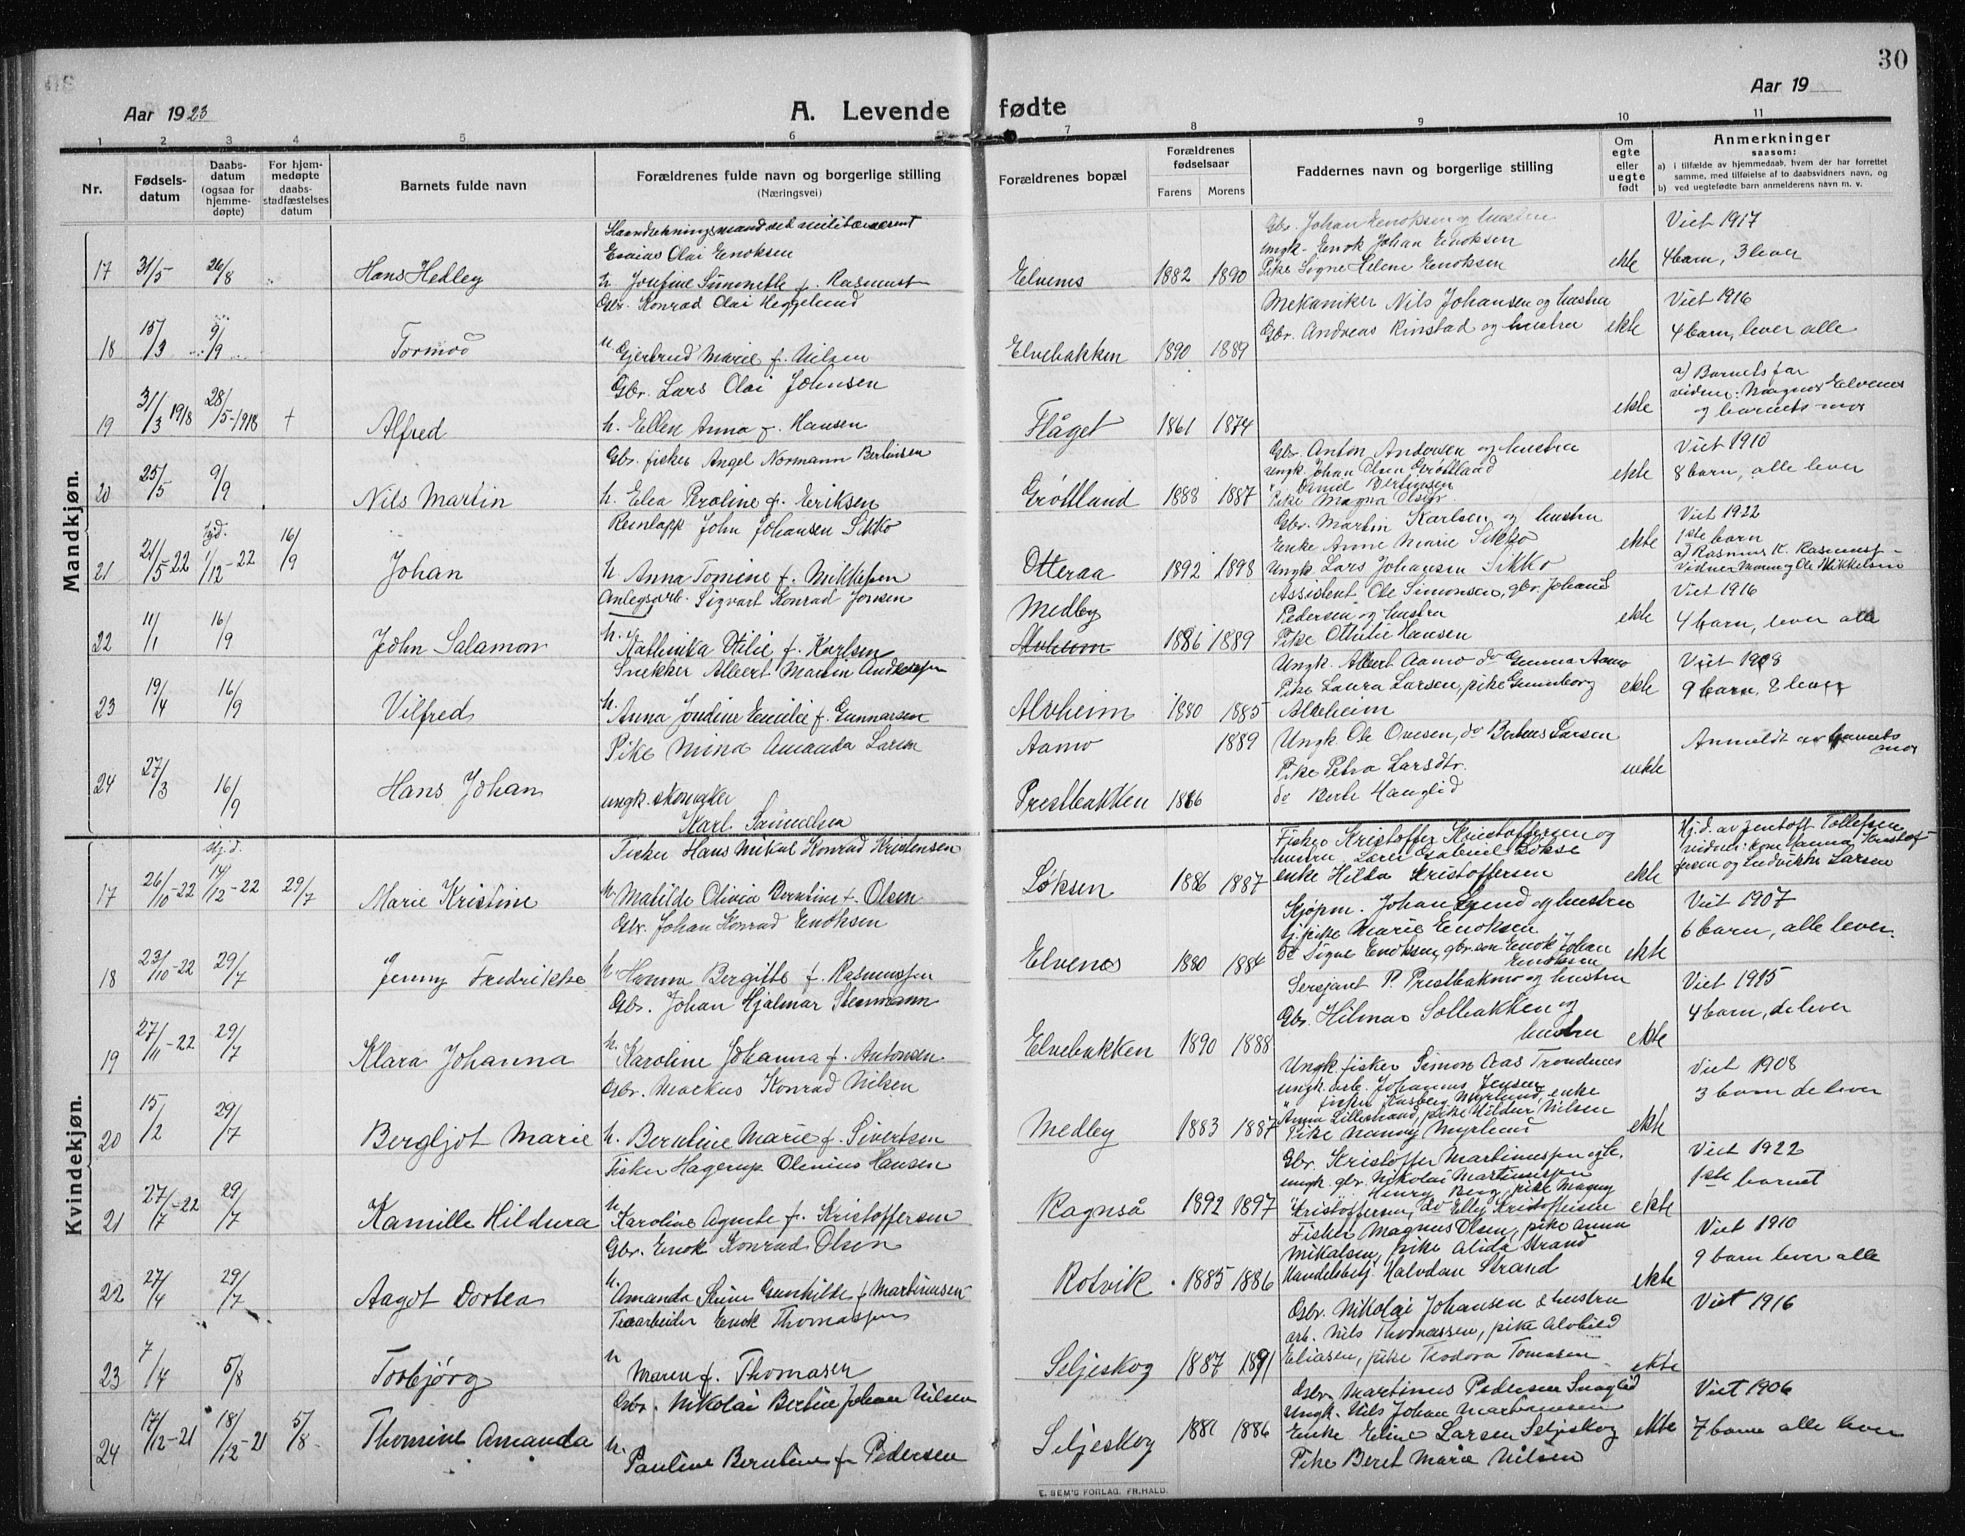 30
Aar 1923
A. Levende fødte
Aar 19
1 2 3 4 5 6 7 8 9 10 11
Nr.
Fødsels-datum
Daabs-datum (ogsaa for hjemme-døpte)
For hjem-medøpte daabs-stadfæstelses datum
Barnets fulde navn
Forældrenes fulde navn og borgerlige stilling (Næringsvei)
Forældrenes bopæl
Forældrenes fødselsaar
Farens Morens
Faddernes navn og borgerlige stilling
Om egte eller uegte født
Anmerkninger
saasom:
a) i tilfælde av hjemmedaab, hvem der har forrettet samme, med tilføielse af to daabsvidners navn, og
b) ved uegtefødte barn anmelderens navn m. v.
Mandkjøn.
17 31/5 26/8 Hans Hedley
Esaias Olai Enoksen
h. Josefine Simonette f. Rasmuss
Elvenes 1882 1890
Gbr. Johan Enoksen og hustru
Ungk. Enok Johan Enoksen
Pike Signe Helene Enoksen
ekte
Viet 1917
4 barn, 3 lever
18 15/3 9/9 Tormod
Gbr. Konrad Olai Heggelund
h. Gjertrud Marie f. Nilsen
Elvebakken 1890 1889
Mekaniker Nils Johansen og hustru
Gbr. Andreas Rinstad og hustru
ekte
Viet 1916
4 barn, lever alle
19 31/3 1918 28/5-1918 + Alfred
Gbr. Lars Olai Johnsen
h. Ellen Anna f. Hansen
Flåget 1861 1874
ekte
a) Barnets far
vidner: Magnus Elvenes
og barnets mor
20 25/5 9/9 Nils Martin
Gbr. fisker Angel Normann Bertinsen
h. Elea Peroline f. Eriksen
Grøtland 1888 1887
Gbr. Anton Andersen og hustru
Ungk. Johan Olsen Grøtland
Pike Magna Olsen
ekte
Viet 1910
8 barn, alle lever
21 21/5-22 1/12-22 16/9 Johan
Reinlapp John Johansen Sikko
h. Anna Tomine f. Mikkelsen
Otteraa 1892 1898
Gbr. Martin Karlsen og hustru
Enke Anne Marie Sikko
Ungk. Lars Johansen Sikko
ekte
Viet 1922
1ste barn
a) Rasmus K. Rasmuss-
22 11/1 16/9 John Salamon
Anlegsarb. Sigvart Konrad Jonsen
h. Kathinka Otilie f. Karlsen
Medby
Alvheim 1886 1889
Assistent Ole Simonsen, gbr. Johans
Pedersen og hustru
Pike Ottilie Hansen
ekte
Viet 1916
4 barn, lever alle
23 19/4 16/9 Vilfred
Snekker Albert Martin Anderssen
h. Anna Jondine Emilie f. Gunnarsen
Alvheim 1880 1885
Ungk. Albert Aamo do Gunnar Aamo
Pike Laura Larsen, pike Gunnborg
Alvheim
ekte
Viet 1908
9 barn, 8 lever
24 27/3 16/9 Hans Johan
Pike Mina Amanda Larsen
ungk. skomaker
Karl Samuelsen
Aamo 1889
Prestbakken 1886
Ungk. Ole Ovesen, do Berteus Larsen
Pike Petra Larsdtr.
do Berte Hanglid
uekte
Anmeldt av barnets
mor
Kvindekjøn.
17 26/10-22 Hj.d. 14/12-22 29/7 Marie Kristine
Fisker Hans Mikal Konrad Kristensen
h. Matilde Olivia Berntine f. Olsen
Løksen 1886 1887
Fisker Kristoffer Kristoffersen og
hustru, Lars Gabriel Løkse
enke Hilda Kristoffersen
ekte
Hj.d. av Jentoft Tollefsen
vidner: kone Hanna Kristof-
fersen og Ludvikke Larsen
18 23/10-22 29/7 Jenny Fredrikke
Gbr. Johan Konrad Enoksen
h. Hanna Bergitte f. Rasmussen
Elvenes 1880 1884
Kjøpm. Johan Lund og hustru
tj. pike Marie Enoksen
do Signe Enoksen, gbr. søn Enok Johan
Enoksen
ekte
Viet 1907
6 barn, alle lever
19 27/11-22 29/7 Klara Johanna
Gbr. Johan Hjalmar Stenmann
h. Karoline Johanna f. Antonsen
Elvebakken 1890 1888
Sersjant P. Prestbakmo og hustru
Gbr. Hilmar Solbakken og
hustru
ekte
Viet 1915
4 barn, de lever
20 15/2 29/7 Bergljot Marie
Gbr. Markus Konrad Nilsen
h. Berntine Marie f. Sivertsen
Medby 1883 1887
Ungk. fisker Simon Aas Trondenes
ungk. arb. Johannes Jensen
" fisker Kasberg Myrlund, enke
Anna Lillestrand, pike Hildur Nilsen
Pike Nanny Myrlund
ekte
Viet 1908
3 barn de lever
21 27/7-22 29/7 Kamille Hildura
Fisker Hagerup Olenius Hansen
h. Karoline Agnete f. Kristoffersen
Ragnså 1892 1897
Gbr. Kristoffer Martinussen og h.
ungk. gbr. Nikolai Martinussen
" Henry Berg, pike Magny
Kristoffersen, do Elly Kristoffersen
ekte
Viet 1922
1ste barnet
22 27/4 29/7 Aagot Dortea
Gbr. Enok Konrad Olsen
h. Amanda Stine Gunhilde f. Martinusen
Rotvik 1885 1886
Fisker Magnus Olsen, pike Anna
Mikalsen, pike Alida Strand
Handelsbetj. Halvdan Strand
ekte
Viet 1910
9 barn lever alle
23 7/4 5/8 Torbjørg
Traarbeider Enok Thomassen
h. Maren f. Thomasen
Seljeskog 1887 1891
Gbr. Nikolai Johansen & hustru
arb. Nils Thomassen, pike Alvhild
Eliasen, pike Teodora Tomasen
ekte
Viet 1916
24 17/12-21 18/12-21 5/8 Thomine Amanda
Gbr. Nikolai Bertine Johan Nilsen
h. Pauline Berntine f. Pedersen
Seljeskog 1881 1886
Gbr. Martinus Pedersen
Ungk. Nils Johan Martinussen
Enke Eline Larsen Seljeskog
Pike Beret Marie Nilsen
ekte
Viet 1906
7 barn alle lever
E. SEM'S FORLAG, FR.HALD.